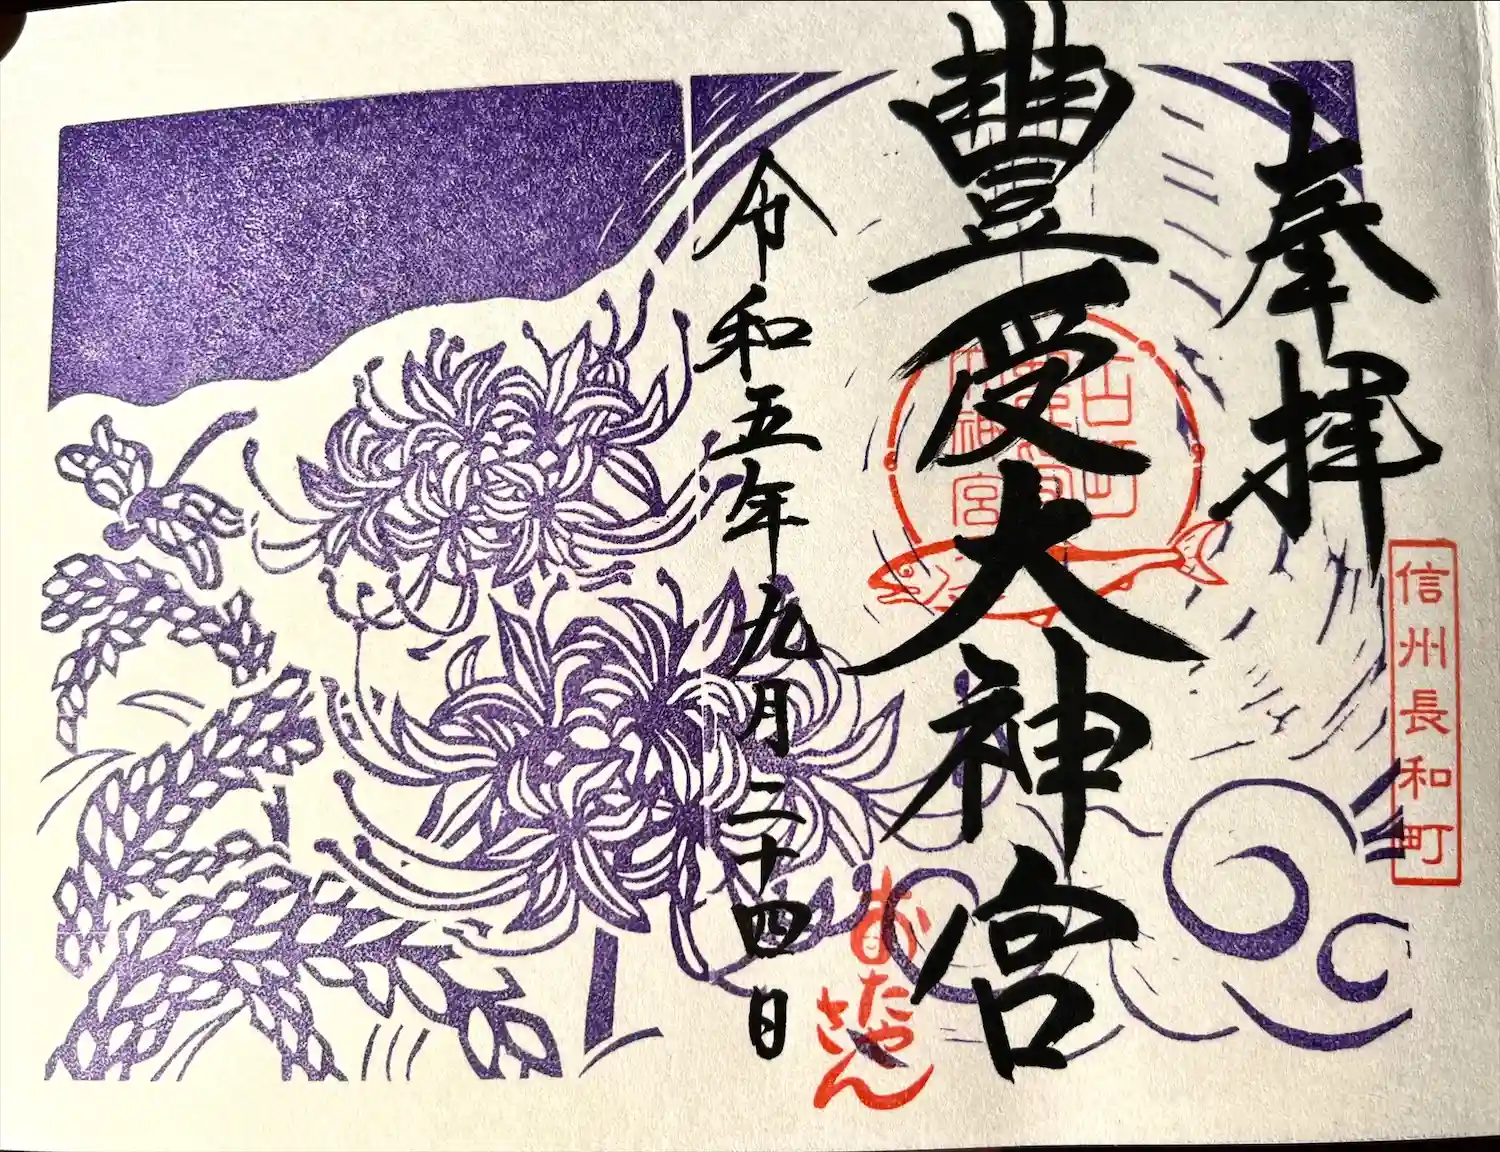 奉拝
信州長和町
豊受大神宮
令和五年九月二十四日
おたやさん